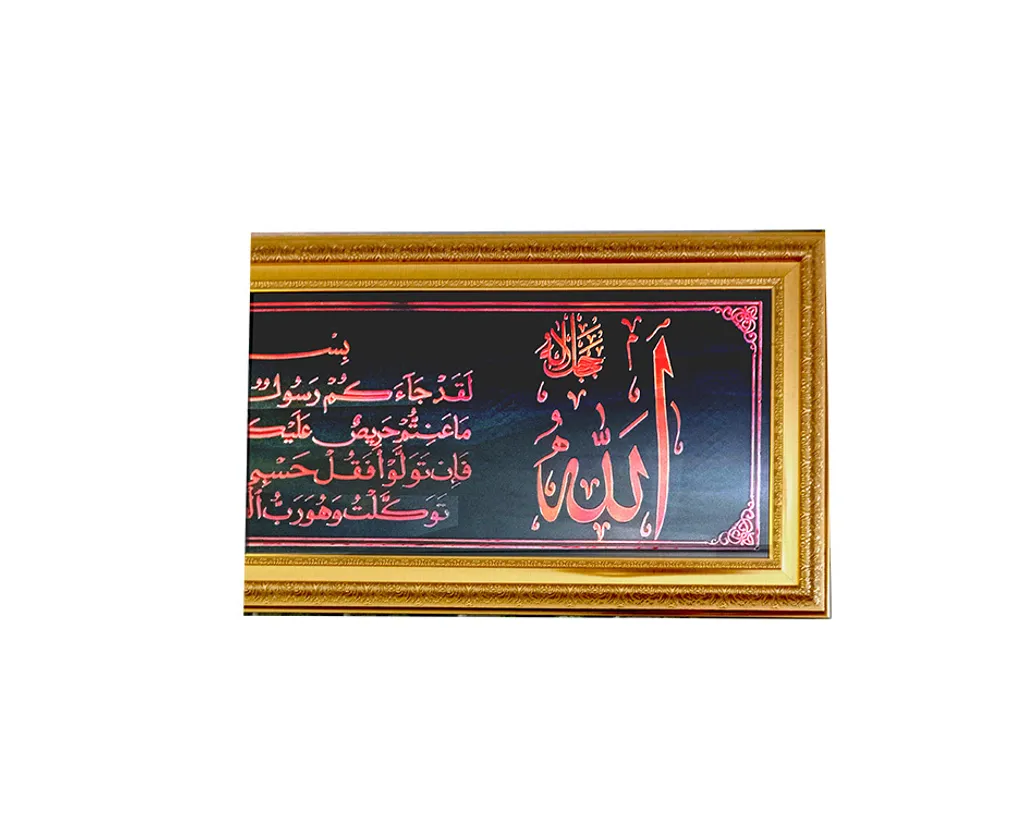 ٱللَّهُ
جل جلاله
بِسْـ
لَقَدْ جَآءَكُمْ رَسُولٌ
مَاعَنِتُّمْ حَرِيصٌ عَلَيْكُـ
فَإِن تَوَلَّوْا۟ فَقُلْ حَسْبِىَ
تَوَكَّلْتُ وَهُوَ رَبُّ ٱلْـ